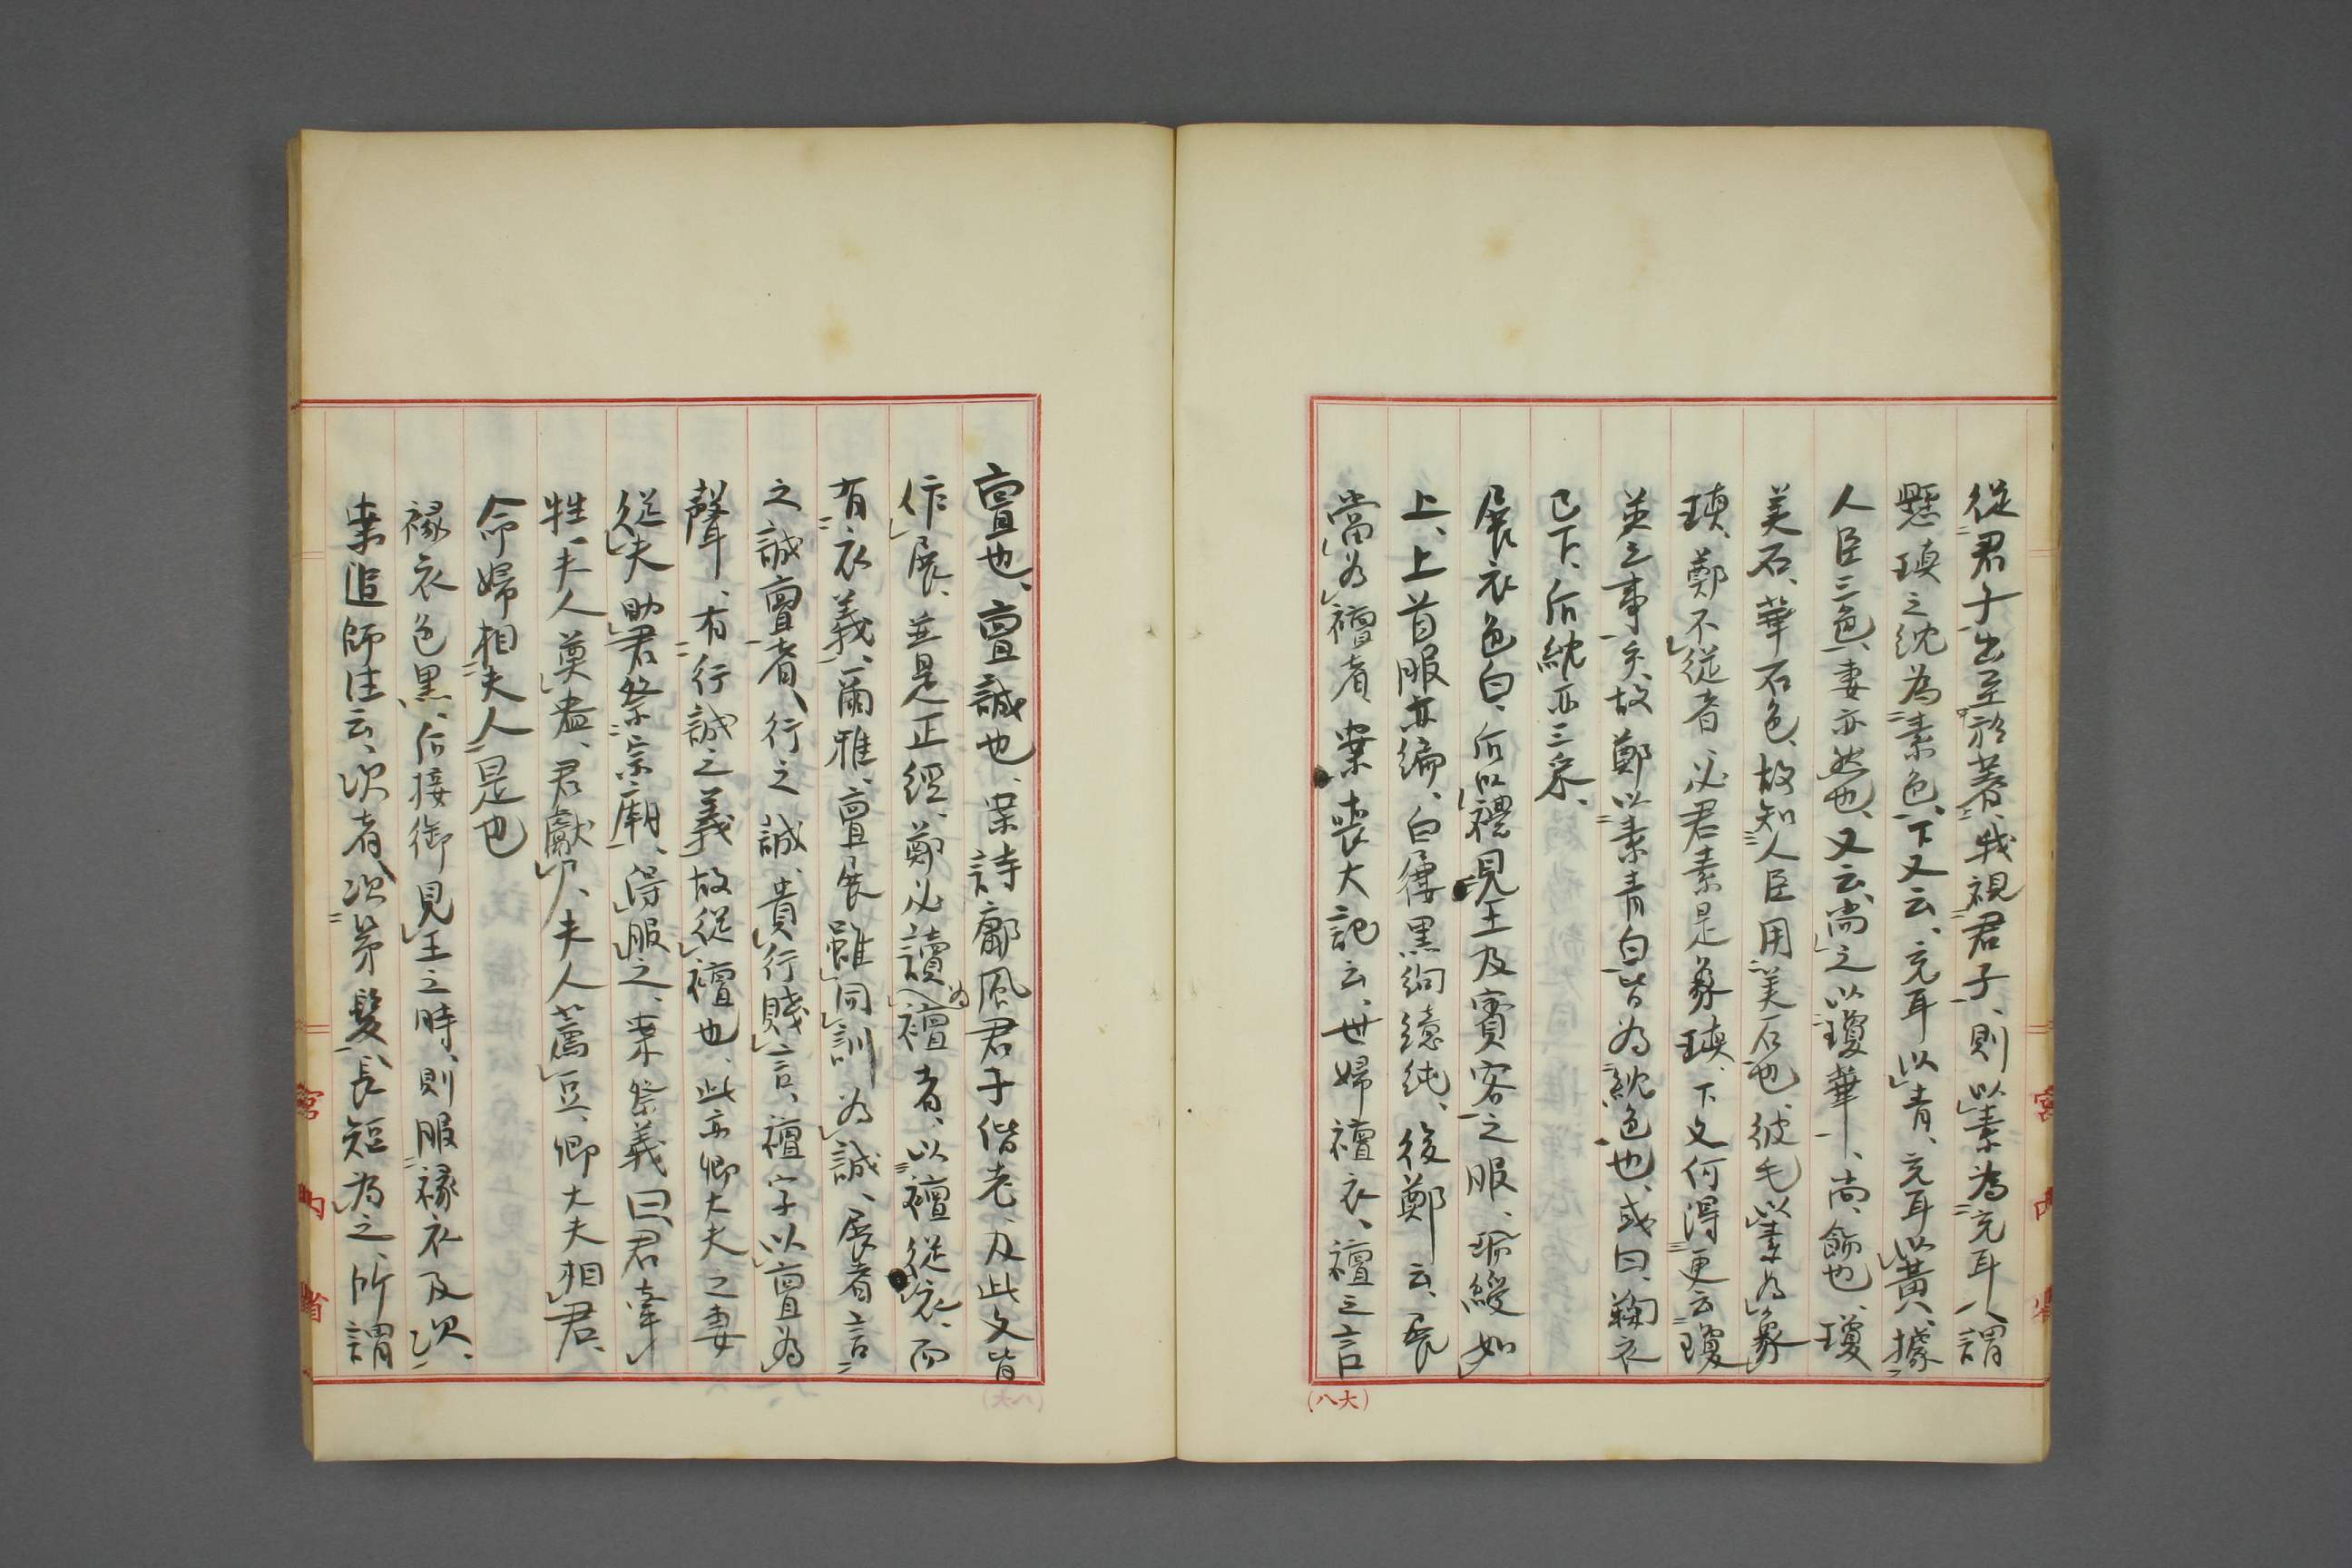 從君子出至於著、我視君子、則以素為充耳、謂
懸瑱之紞為素色、下又云、充耳以青、充耳以黃、據
人臣三色、妻亦然也、又云、尚之以瓊華、尚、飾也、瓊
美石、華石色、故知人臣用美石也、彼毛以素為象
瑱、鄭不從者、必君素是象瑱、下文何得更云瓊
英之事乎、故鄭以素青白皆為紞色也、或曰、鞠衣
已下、后紞亦三采、
展衣色白、后以禮見王及賓客之服、珮綬如
上、上首服亦編、白屨黑絇繶純、後鄭云、展
當為襢者、案喪大記云、世婦襢衣、襢之言
亶也、亶誠也、案詩鄘風君子偕老、及此文皆
作展、並是正經、鄭必讀為襢者、以襢從衣、而
有衣義、爾雅、亶展雖同訓為誠、展者言
之誠亶者、行之誠、貴行賤言、襢字以亶為
聲、有行誠之義、故從襢也、此亦卿大夫之妻
從夫助君祭宗廟、得服之、案祭義曰、君牽
牲、夫人奠盎、君獻尸、夫人薦豆、卿大夫相君、
命婦相夫人是也
褖衣色黑、后接御見王之時、則服褖衣及次、
案追師注云、次者、次第髮長短為之、所謂
宮內省
宮內省
(八大)